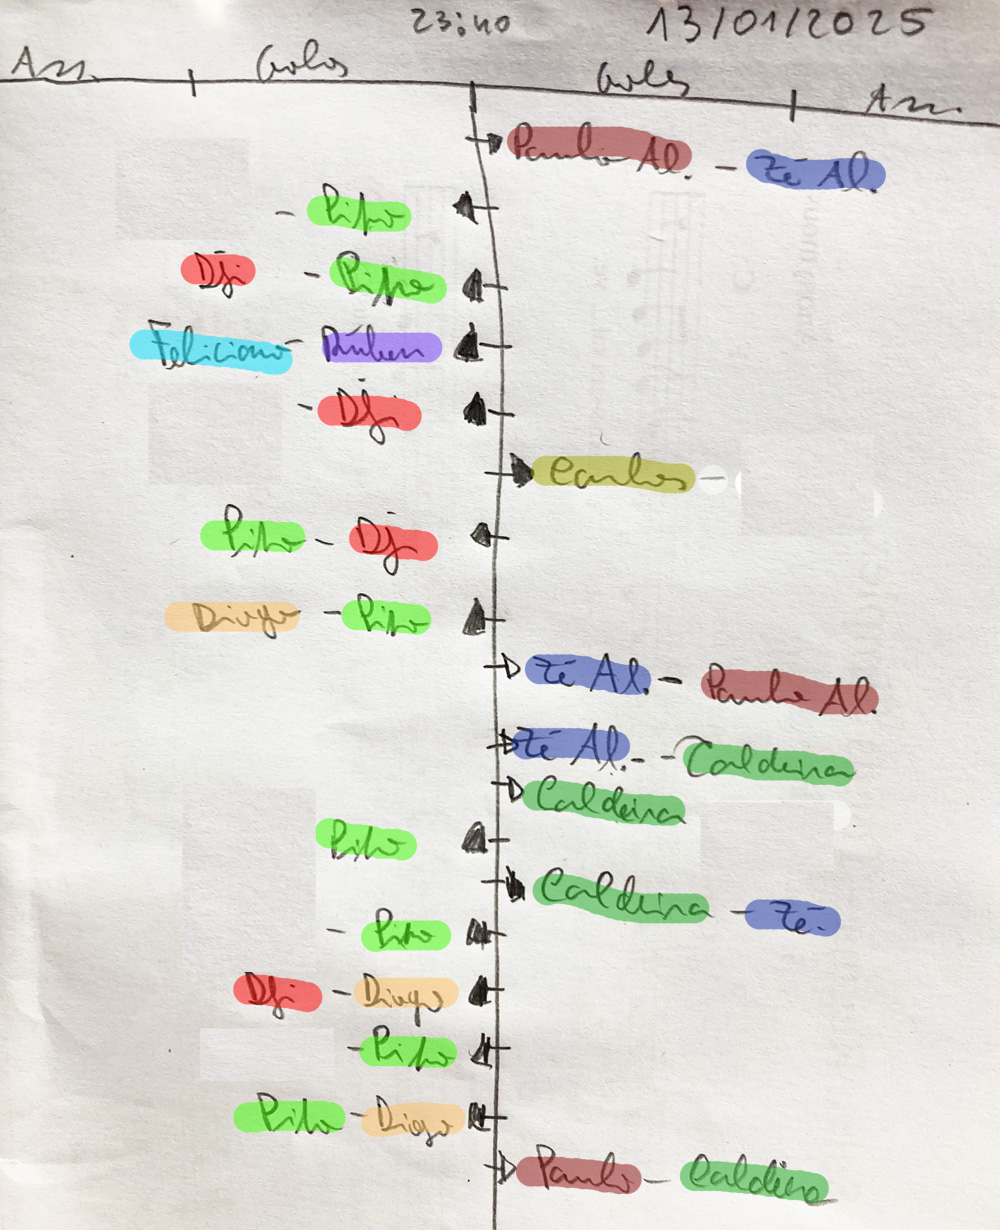 23:40 13/01/2025
Ass. Golos Goles Ass.
Paulo Al. - Zé Al.
- Pipo
Dji - Pipo
Feliciano - Rúben
- Dji
Carlos -
Pipo - Dji
Diogo - Pipo
Zé Al. - Paulo Al.
Zé Al. - Caldeira
Caldeira
Pipo
Caldeira - Zé.
- Pipo
Dji - Diogo
- Pipo
Pipo - Diogo
Paulo - Caldeira